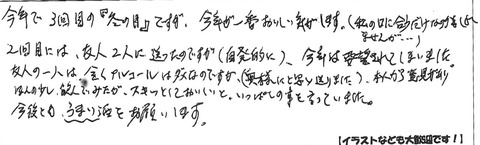 今年で3回目の『冬の月』ですが、今年が一番おいしい気がします。(私の口に合うだけかもしれ
ませんが…)
2回目には、友人2人に送ったのですが(自発的に)、今年は希望されてしまいました。
友人の一人は、全くアルコールはダメなのですが、(奥様にと思い送りました)、本人が
ほんの少し飲んでみたが、スキッとしておいしいと、いっぱしの事を言っていました。
今後とも、うまい酒をお願いします。
【イラストなども大歓迎です!】